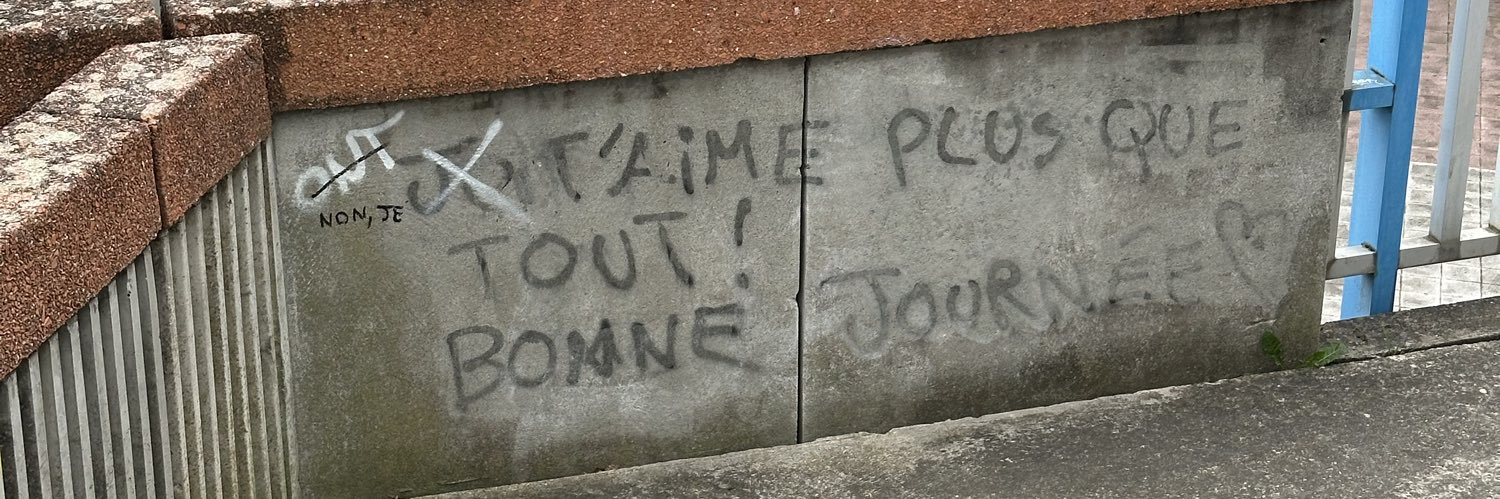 ONT
NON, JE
T'AiME PLUS QUE
TOUT !
BONNE JOURNÉE